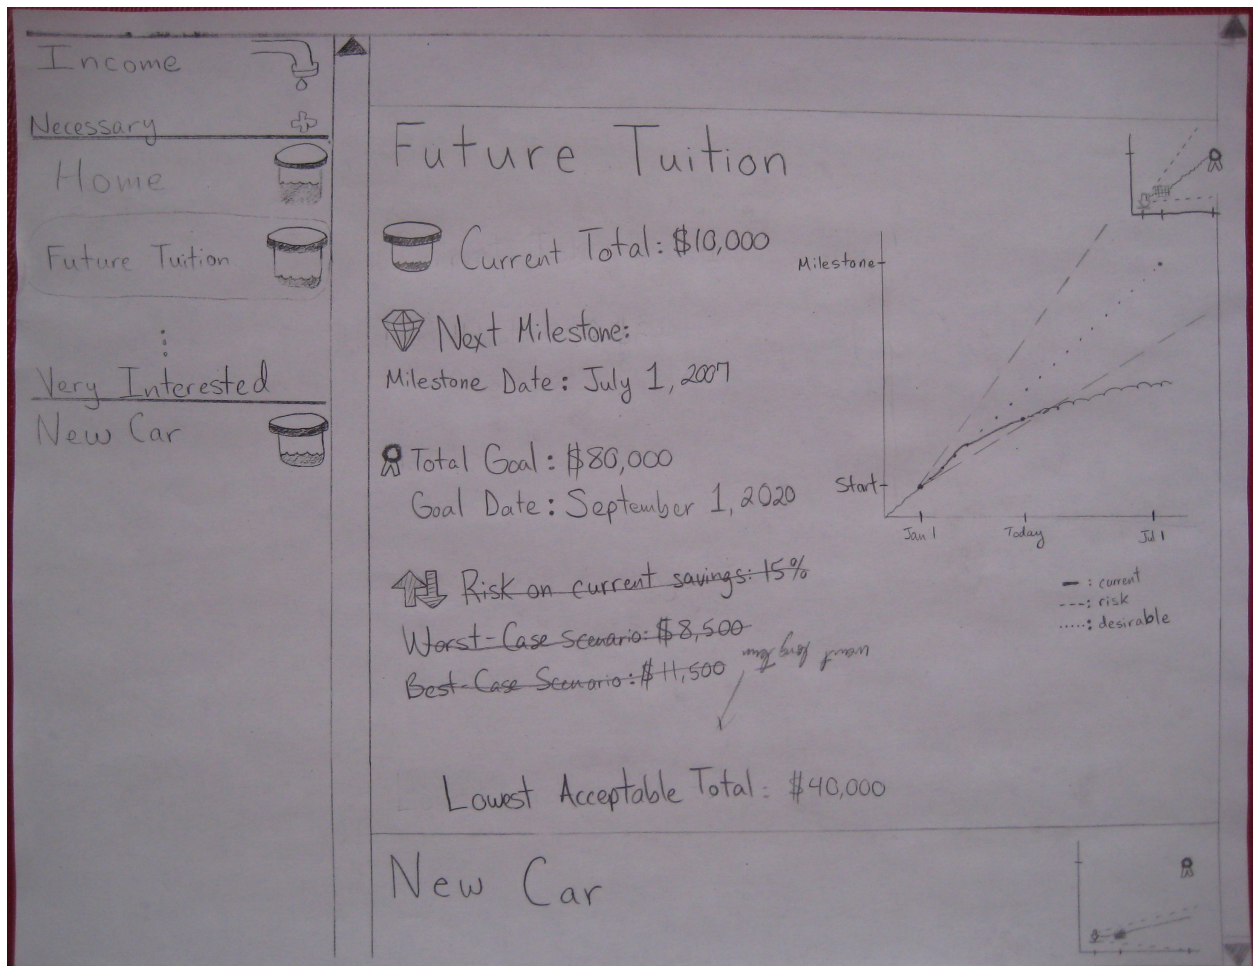 Income
Necessary
Home
Future Tuition
Very Interested
New Car
Future Tuition
Current Total: $10,000
Next Milestone:
Milestone Date: July 1, 2007
Total Goal: $80,000
Goal Date: September 1, 2020
Risk on current savings: 15%
Worst-Case Scenario: $8,500
Best-Case Scenario: $11,500
want long term
Lowest Acceptable Total: $40,000
Milestone
Start
Jan 1
Today
Jul 1
: current
: risk
: desirable
New Car